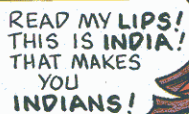 READ MY LIPS!
THIS IS INDIA!
THAT MAKES
YOU
INDIANS!